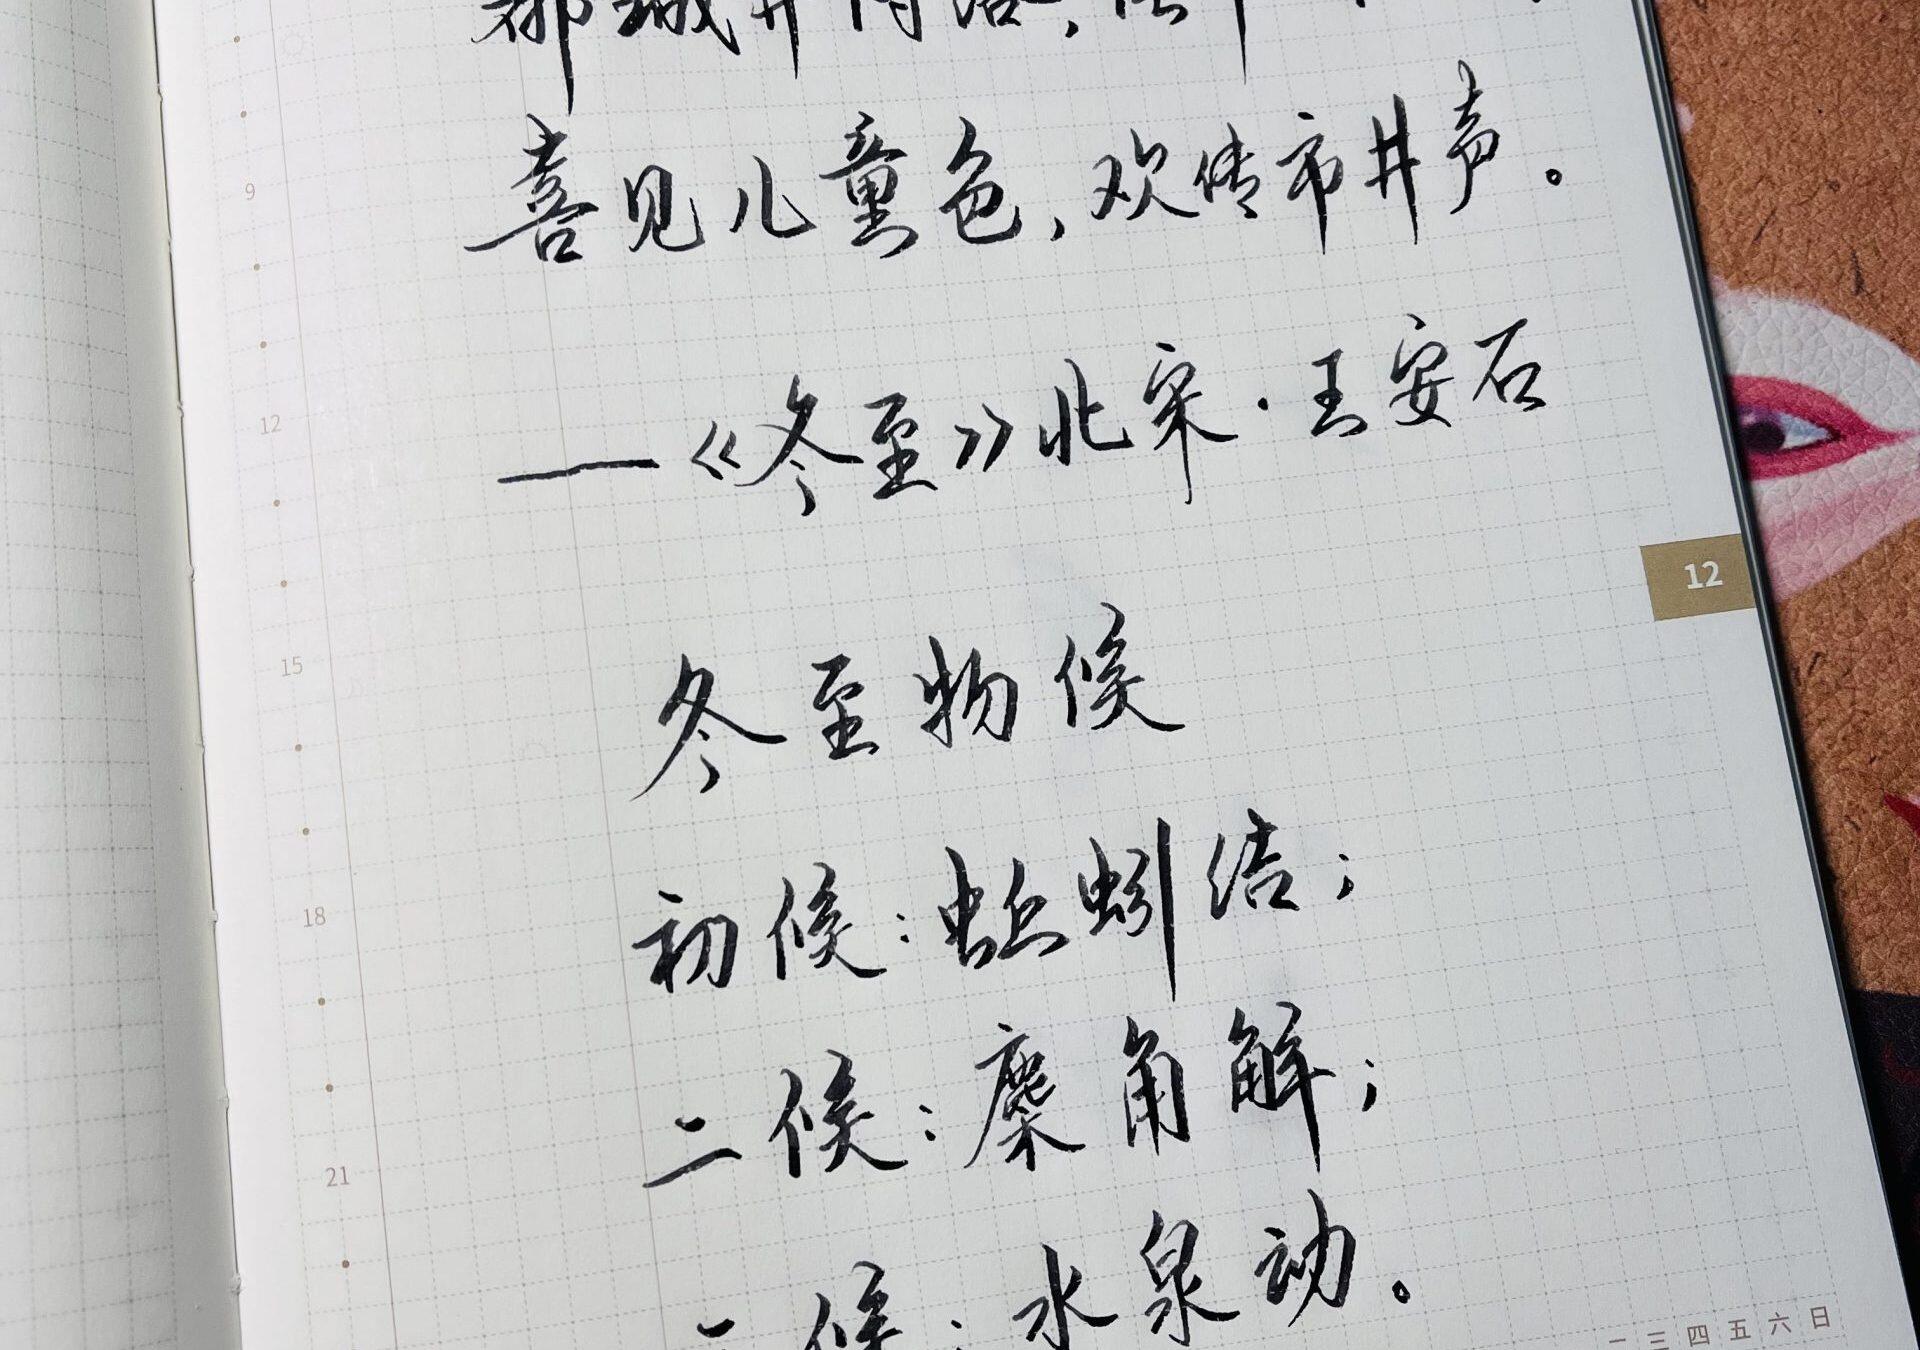 喜见儿童色，欢传市井声。
9
——《冬至》北宋·王安石
12
12
冬至物候
15
初候：蚯蚓结；
18
二候：麋角解；
21
候：水泉动。
二 三 四 五 六 日